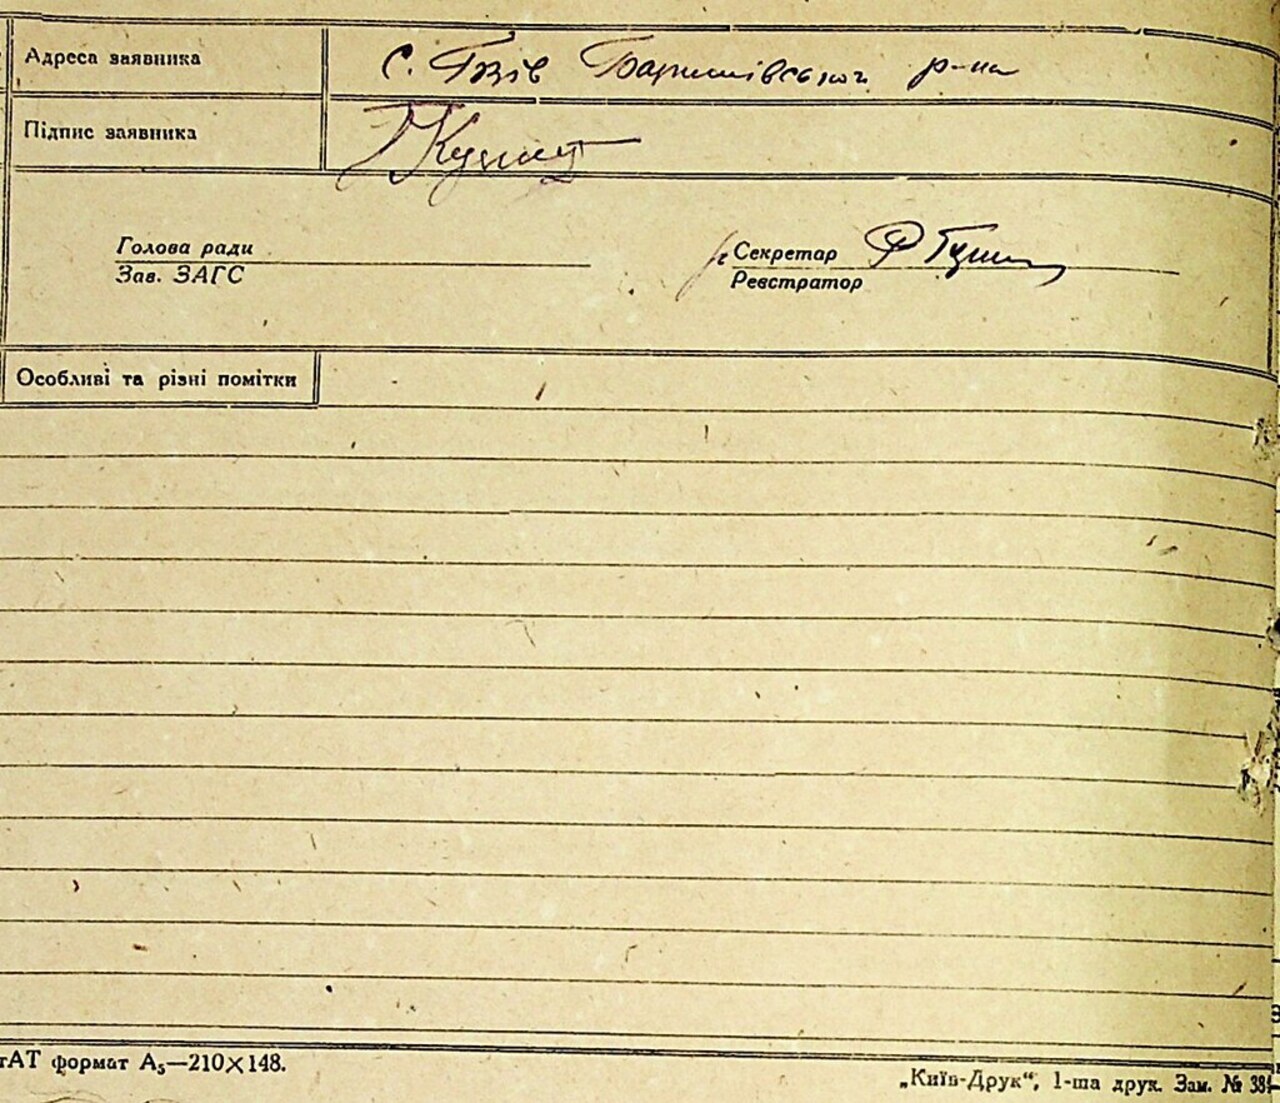 Адреса заявника с. Гвзів Баришівського р-на
Підпис заявника
Голова ради
Зав. ЗАГС
Секретар
Реєстратор
Особливі та різні помітки
тАТ формат А₅—210×148.
„Київ-Друк“, 1-ша друк. Зам. № 384